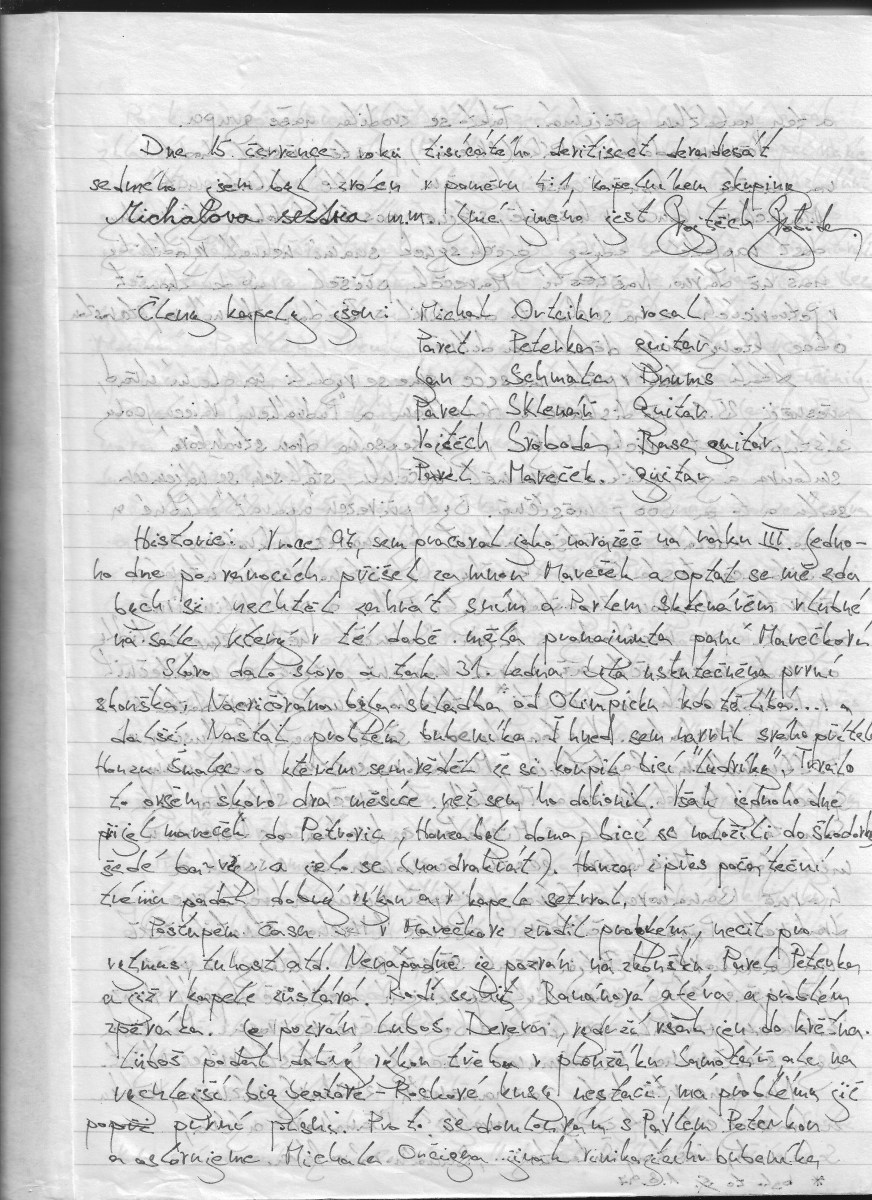 Dne 15. července roku tisícátého devítiscet devadesát
sedmého jsem byl zvolen v poměru 4:1 kapelníkem skupiny
Michalova sestra m.m. (mé jméno jest Vojtěch Svoboda.)
Členy kapely jsou: Michal Ovčikn vocal
Pavel Peterka guitar
Jan Schmalc Drums
Pavel Sklenář guitar
Vojtěch Svoboda Base guitar
Pavel Mareček. guitar
Historie: V roce 97, sem pracoval jako naražeč na vrku III. Jedno-
ho dne po vánocích přišel za mnou Mareček a optal se mě zda
bych si nechtěl zahrát sním a Pavlem Sklenářem v Lubné
na sále, který v té době měla pronajmuta paní Marečková
Slovo dalo slovo a tak 31. ledna byla uskutečněna první
zkouška, Nacvičována byla skladba od Olimpicku kdo tě líbá.... a
další. Nastal problém bubeníka. Ihned sem navrhl svého přítele
Honzu Šmalce o kterém sem věděl že si koupil bicí "Ludvika", Trvalo
to ovšem skoro dva měsíce než sem ho dohonil. Však jednoho dne
přijel mareček do Petrovic, Honza byl doma, bicí se naložili do škodovky
šedé barvy a jelo se (na drákvát). Honza i přes počáteční
trému podal dobrý výkon a v kapele setrval.
Postupem času se v Marečkovi zrodil problém, necit pro
rytmus, tuhost atd. Nenápadně je pozván na zkoušku Pavel Peterka
a již v kapele zůstává. Rodí se hit Banánová atéva a problém
zpěváka. Je pozván Luboš Dereva, vydrží však jen do května.
Luboš podal dobrý výkon třeba v ploužáku Samotář, ale na
rychlejší big beatové - Rockové kusy nestačí, má problémy již
popřé první písni. Proto se domlouvám s Pavlem Peterkou
a oslovujeme Michala Ovčigna jinak vynikajícího bubeníka